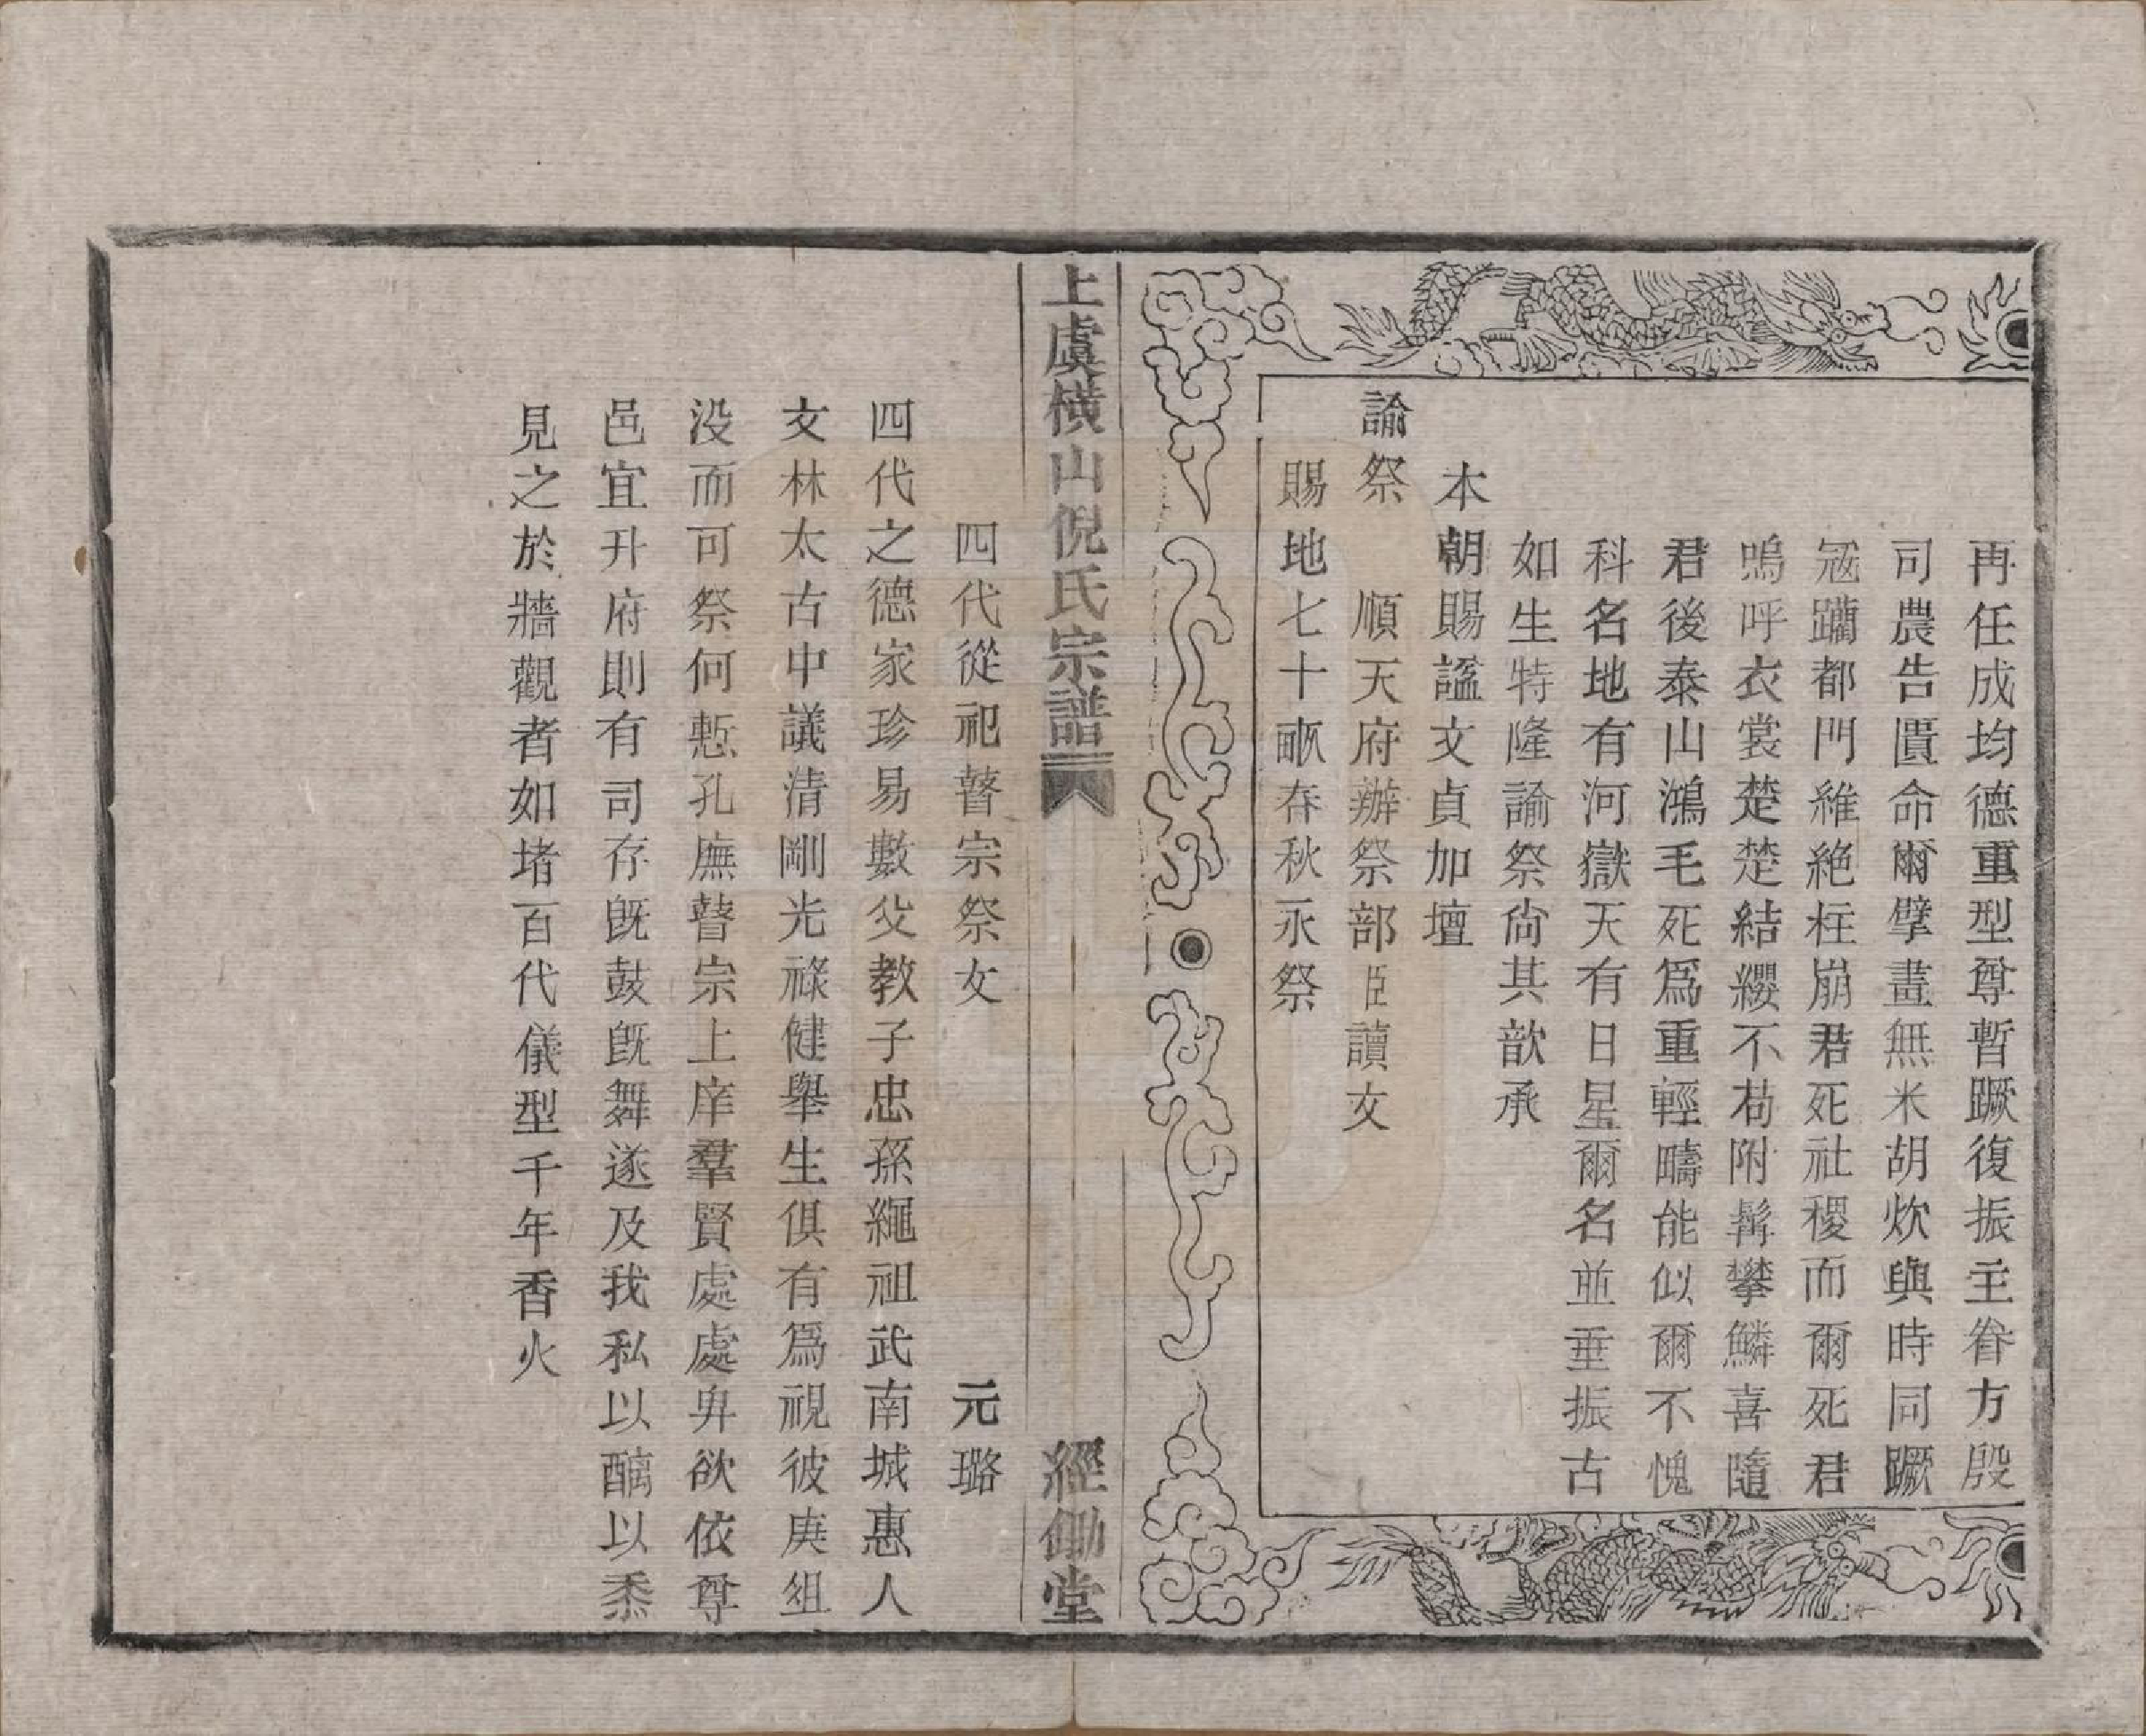 再任成均德重型尊暫蹶復振主眷方殷
司農告匱命爾擘畫無米胡炊與時同蹶
寇躪都門維絶柱崩君死社稷而爾死君
嗚呼衣裳楚楚結纓不苟附髯攀鱗喜隨
君後泰山鴻毛死爲重輕疇能似爾不愧
科名地有河嶽天有日星爾名並垂振古
如生特隆諭祭尙其歆承
本朝賜諡文貞加壇
諭祭 順天府辦祭部臣讀文
賜地七十畝春秋永祭
上虞橫山倪氏宗譜 經鋤堂
四代從祀瞽宗祭文 元璐
四代之德家珍易數父教子忠孫繩祖武南城惠人
文林太古中議清剛光祿健舉生俱有爲視彼庚俎
没而可祭何慙孔廡瞽宗上庠羣賢處處畀欲依尊
邑宜升府則有司存旣鼓旣舞遂及我私以酾以黍
見之於牆觀者如堵百代儀型千年香火